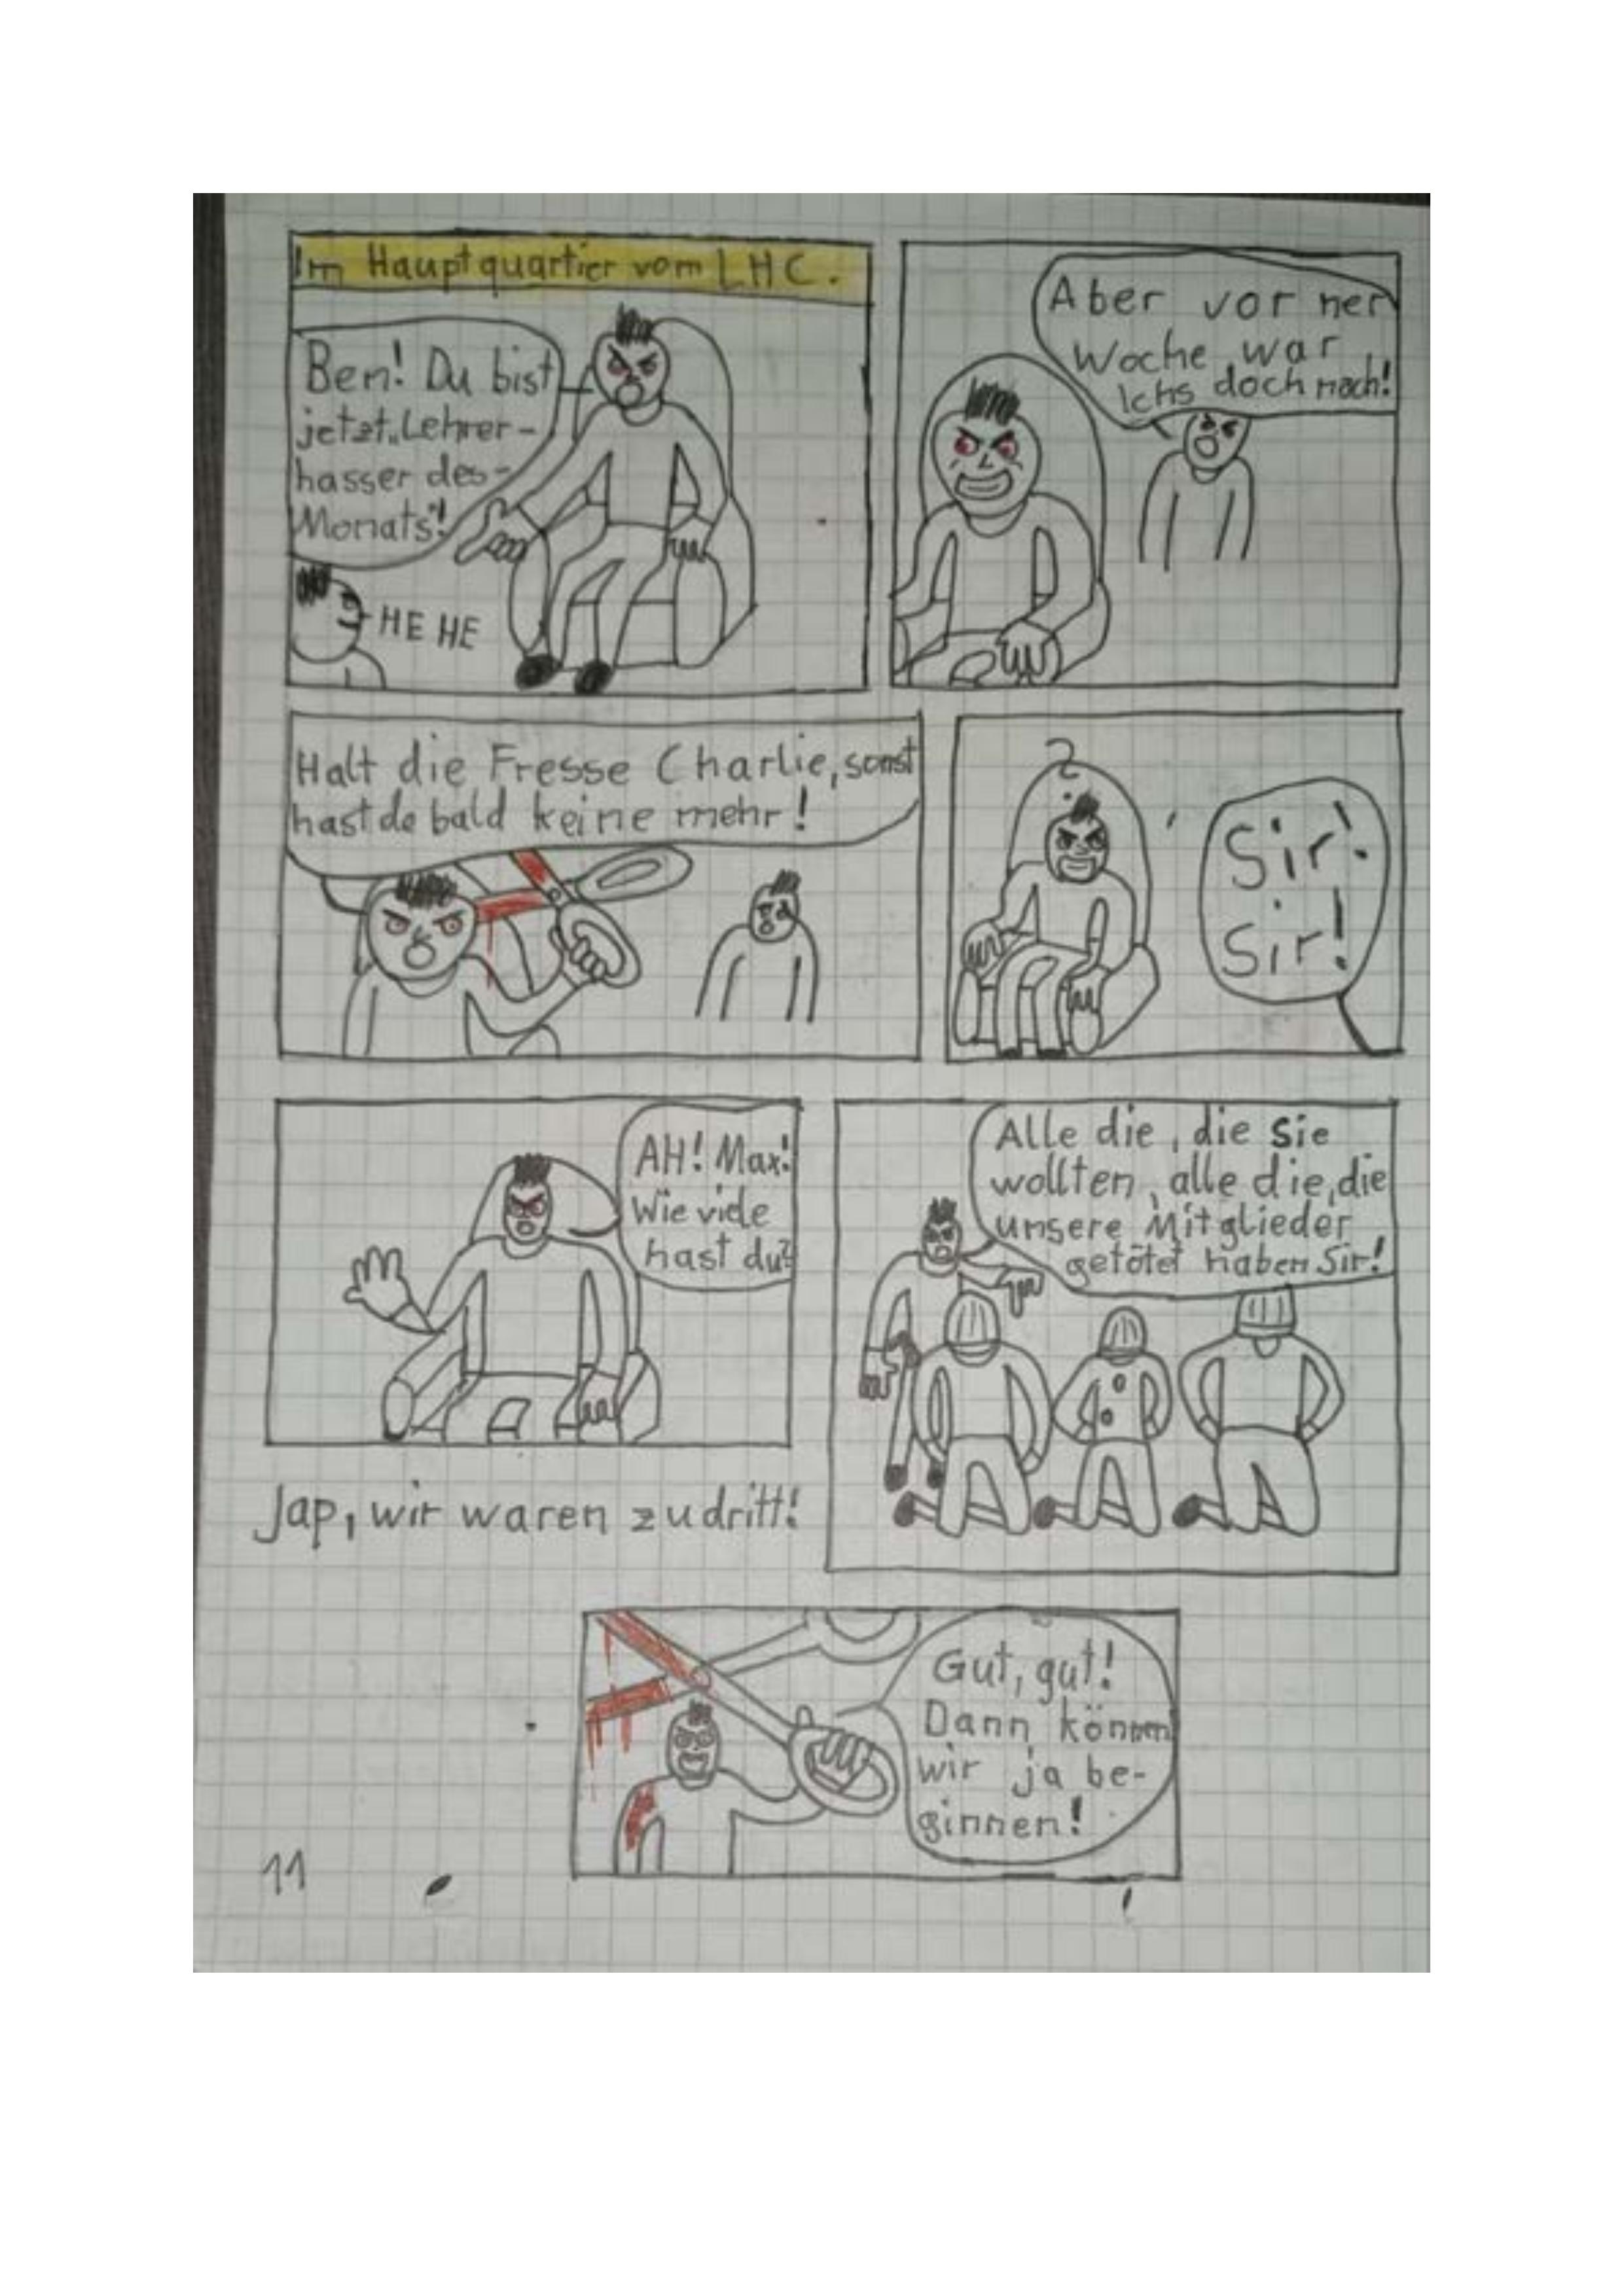 Im Hauptquartier vom LHC.
Ben! Du bist
jetzt „Lehrer-
hasser des-
Monats"!
HE HE
Aber vor ner
Woche war
Ichs doch noch!
Halt die Fresse Charlie, sonst
hast de bald keine mehr!
?
Sir!
Sir!
AH! Max!
Wie viele
hast du?
Alle die, die Sie
wollten, alle die, die
unsere Mitglieder
getötet haben Sir!
Jap, wir waren zu dritt!
Gut, gut!
Dann können
wir ja be-
ginnen!
11